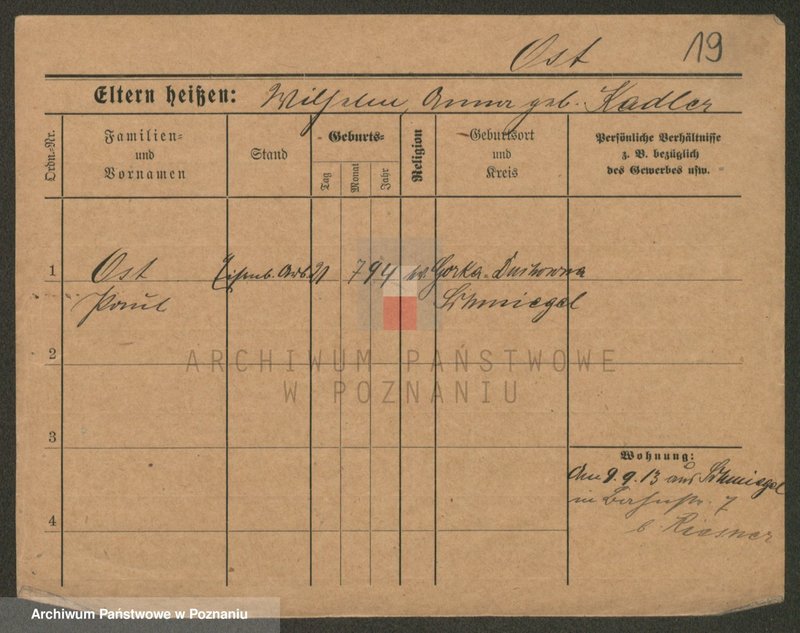 Ost 19
Eltern heißen: Wilhelm, Anna geb. Kadler
Ordn.-Nr.
Familien- und Vornamen
Stand
Geburts-
Tag
Monat
Jahr
Religion
Geburtsort und Kreis
Persönliche Verhältnisse z. B. bezüglich des Gewerbes usw.
1 Ost Eisenb. Arb. 21 7 94 ev. Gorka-Duchowna
Paul Schmiegel
ARCHIWUM PAŃSTWOWE
W POZNANIU
2
3
Wohnung:
Am 9.9.13 aus Schmiegel
in 7
4
b.
Archiwum Państwowe w Poznaniu